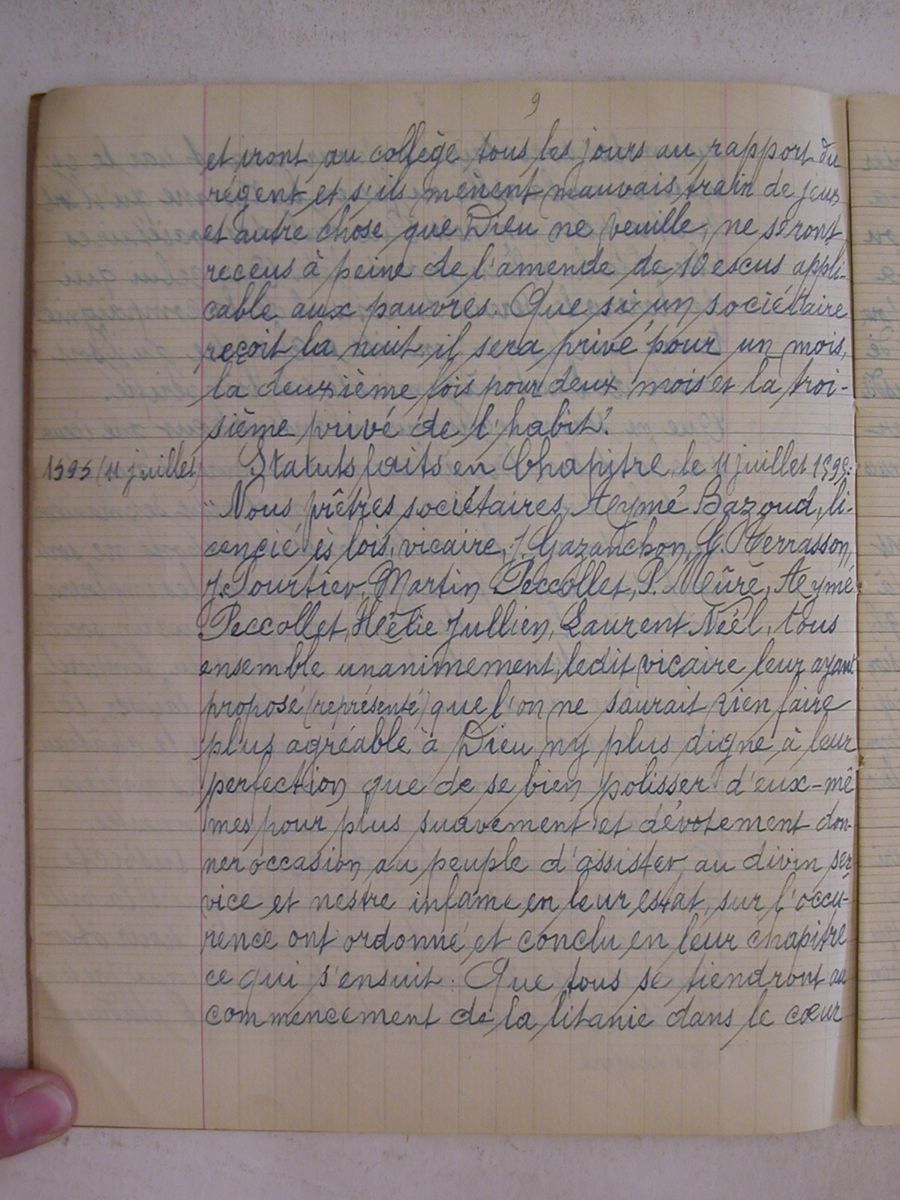 9
et iront au collège tous les jours au rapport du
régent et s'ils mènent mauvais train de jeux
et autre chose que Dieu ne veuille, ne seront
receus à peine de l'amende de 10 escus appli-
cable aux pauvres. Que si un sociétaire
reçoit la nuit il sera privé pour un mois,
la deuxième fois pour deux mois et la troi-
sième privé de l'habit."
1595 (11 juillet) Statuts faits en Chapitre le 11 juillet 1595:
"Nous prêtres sociétaires, Aymé Bazoud, li-
cencié ès lois, vicaire, J. Gazanchon, G. Terrasson,
J. Pourtier, Martin Peccollet, P. Mûre, Aymé
Peccollet, Hélie Jullien, Laurent Néel, tous
ensemble unanimement, ledit vicaire leur ayant
proposé (représenté) que l'on ne saurait rien faire
plus agréable à Dieu ny plus digne à leur
perfection que de se bien polisser d'eux-mê
mes pour plus suavement et dévotement don-
ner occasion au peuple d'assister au divin ser-
vice et nestre infâme en leur estat, sur l'occu-
rence ont ordonné et conclu en leur chapitre
ce qui s'ensuit. Que tous se tiendront au
commencement de la litanie dans le cœur